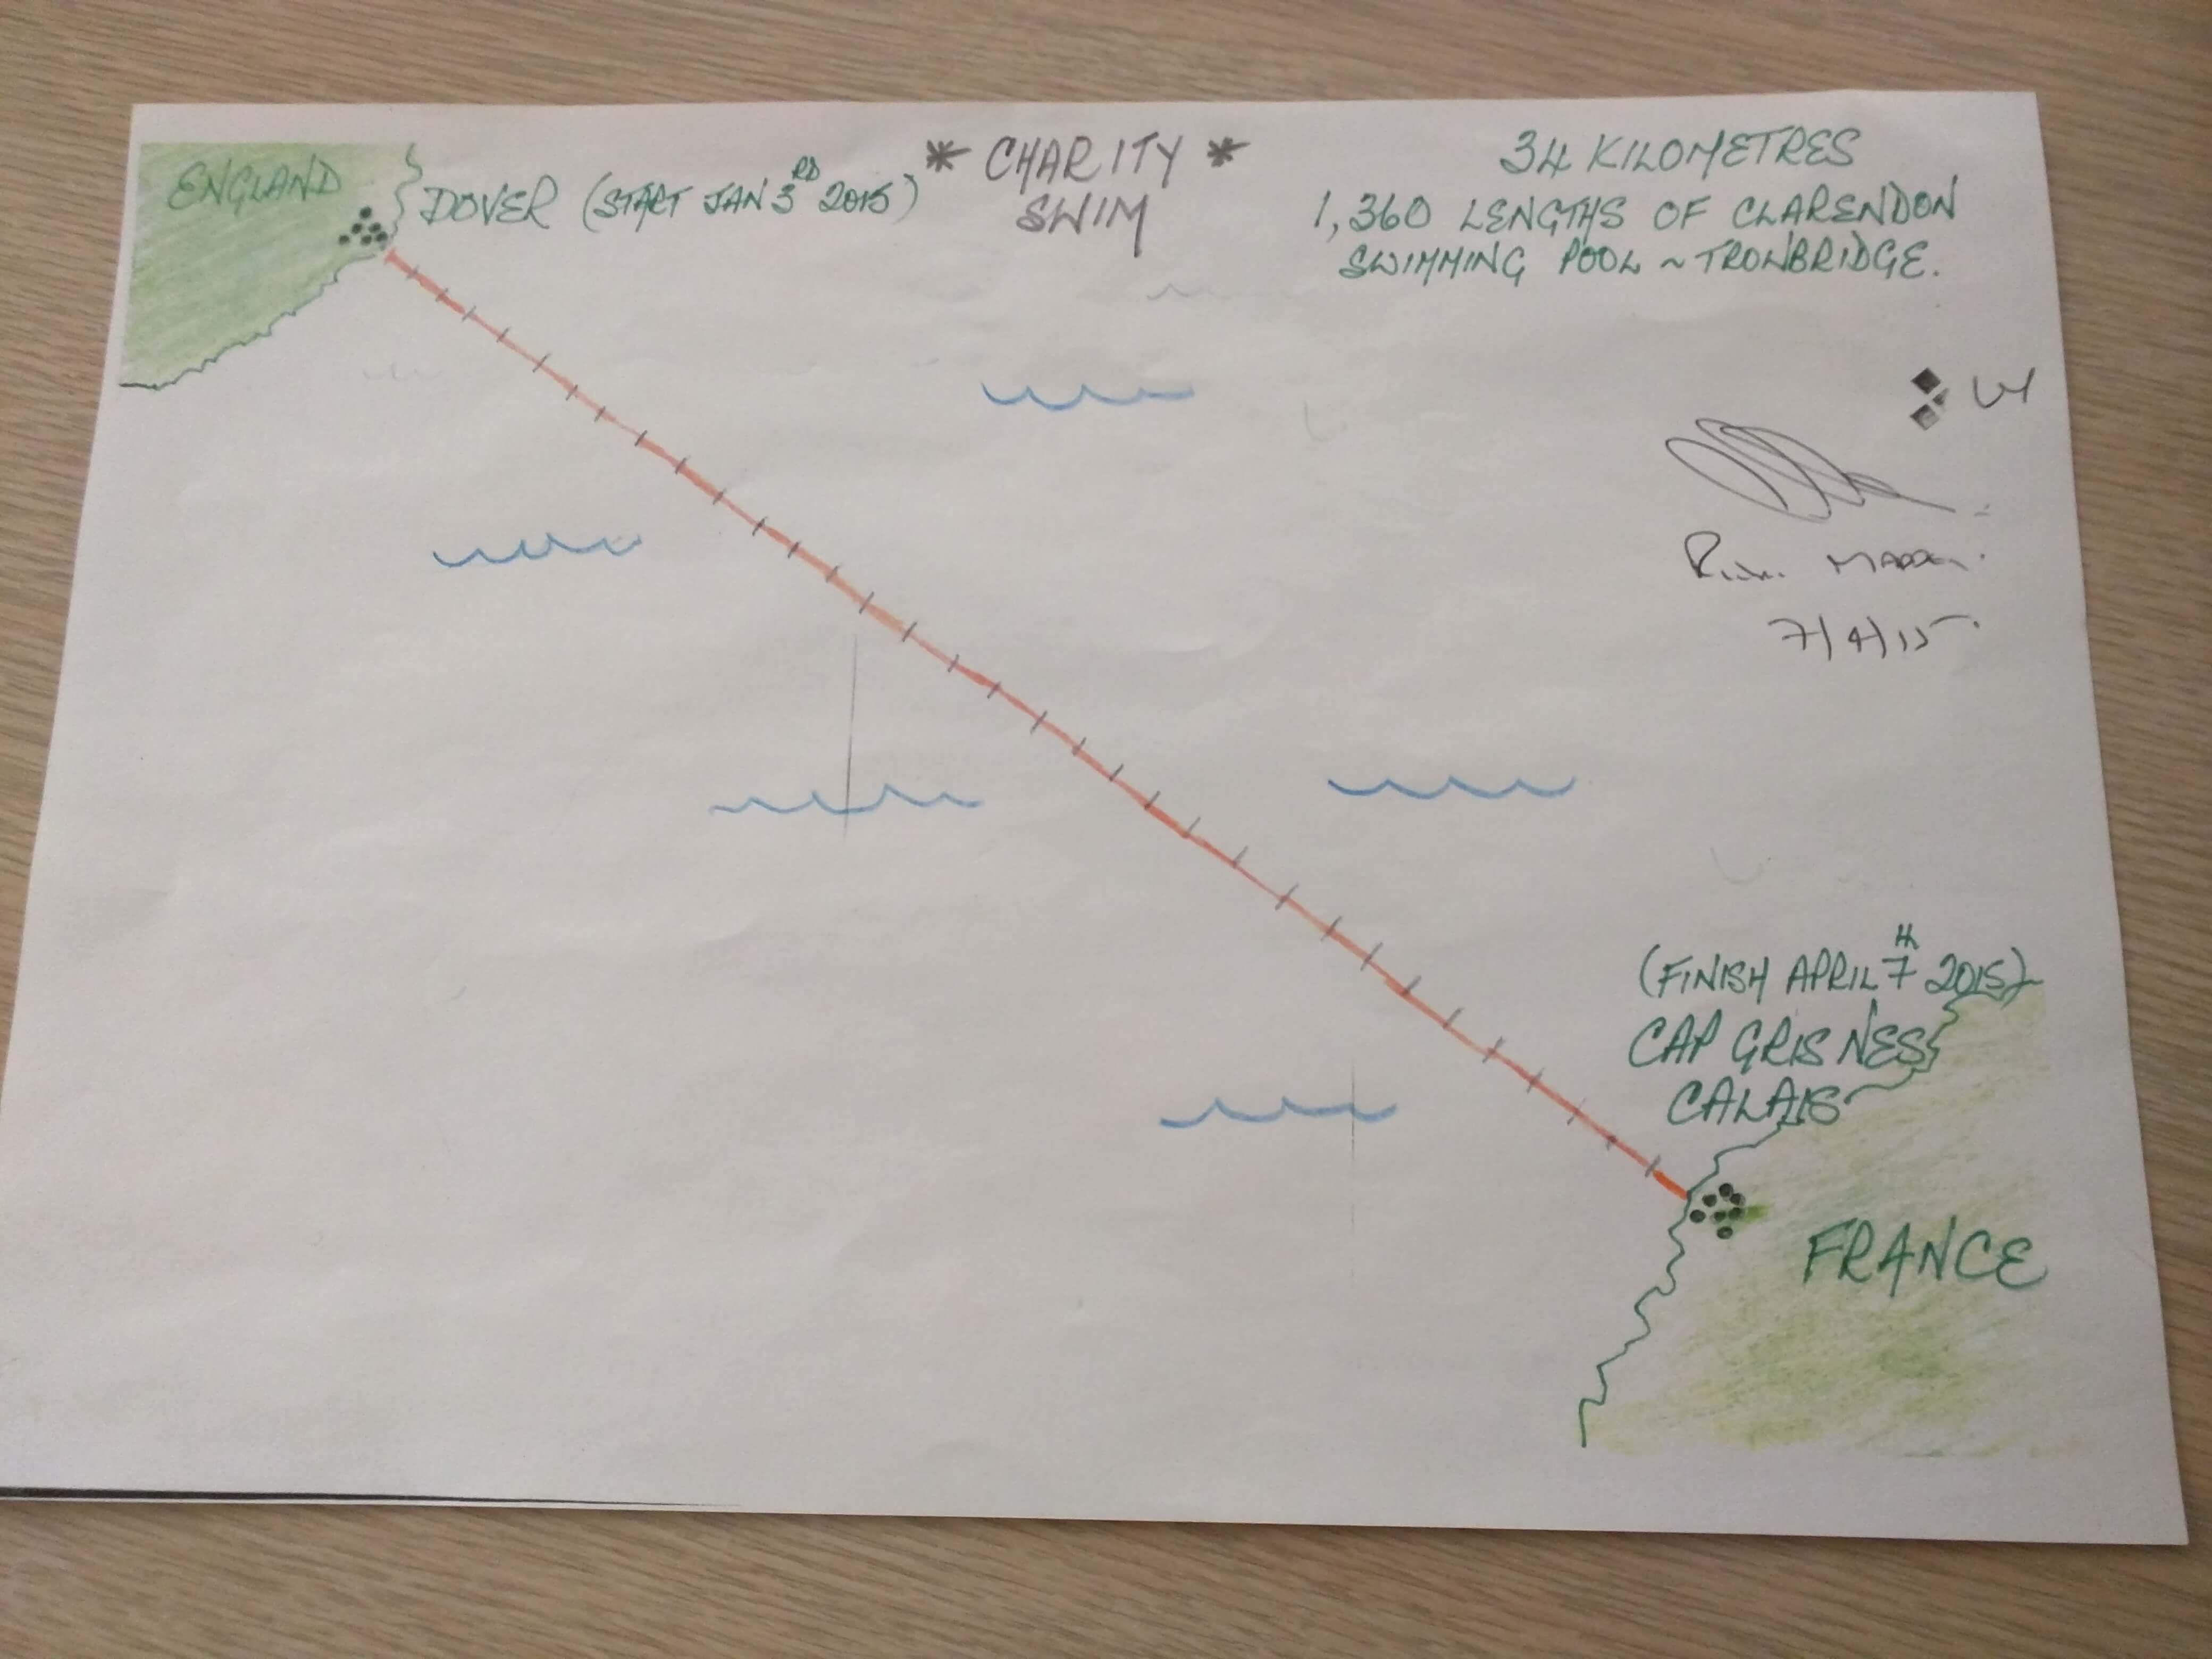 ENGLAND
DOVER (START JAN 3RD 2015)
* CHARITY *
SWIM
34 KILOMETRES
1,360 LENGTHS OF CLARENDON
SWIMMING POOL ~ TROWBRIDGE.
7/4/15
(FINISH APRIL 7th 2015)
CAP GRIS NES
CALAIS
FRANCE